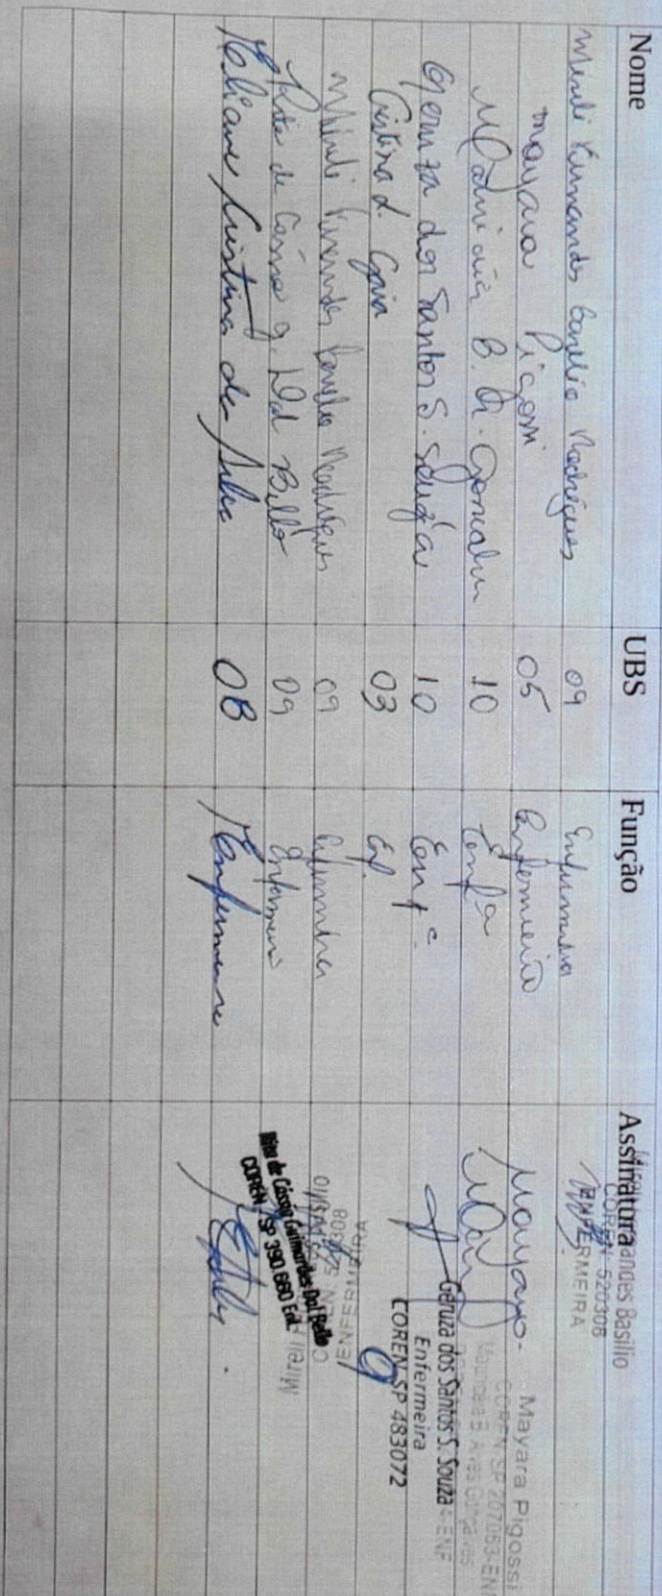 Nome UBS Função Assinatura
Mirieli Fernandes Basilio Rodrigues 09 Enfermeira
andes Basilio
COREN 520308
ENFERMEIRA
Mayara Pigossi 05 Enfermeira Mayara
Mayara Pigossi
COREN SP 207063-EN
B. A. Goncalves 10 Enfª
B Alves Gonçalves
ENF
Geruza dos Santos S. Souza 10 Enfª
Geruza dos Santos S. Souza
Enfermeira
COREN SP 483072
Cristina L. Gaia 03 Enf
Mirieli Fernandes Basilio Rodrigues 09 Enfermeira
ENFERMEIRA
Rita de Cássia G. Dal Bello 09 Enfermeira
Rita de Cássia Guimarães Dal Bello
COREN SP 390.660 Enf.
Cristina da Silva 08 Enfermeira